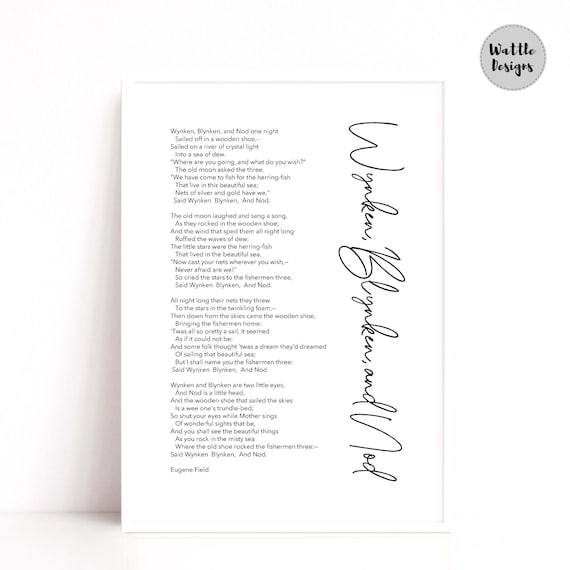 Wattle
Designs
Wynken, Blynken, and Nod one night
Sailed off in a wooden shoe,–
Sailed on a river of crystal light
Into a sea of dew.
"Where are you going, and what do you wish?"
The old moon asked the three.
"We have come to fish for the herring-fish
That live in this beautiful sea;
Nets of silver and gold have we,"
Said Wynken Blynken, And Nod.
The old moon laughed and sang a song,
As they rocked in the wooden shoe;
And the wind that sped them all night long
Ruffled the waves of dew;
The little stars were the herring-fish
That lived in the beautiful sea.
"Now cast your nets wherever you wish,–
Never afraid are we!"
So cried the stars to the fishermen three,
Said Wynken Blynken, And Nod.
All night long their nets they threw
To the stars in the twinkling foam,–
Then down from the skies came the wooden shoe,
Bringing the fishermen home:
'Twas all so pretty a sail, it seemed
As if it could not be;
And some folk thought 'twas a dream they'd dreamed
Of sailing that beautiful sea;
But I shall name you the fishermen three:
Said Wynken Blynken, And Nod.
Wynken and Blynken are two little eyes,
And Nod is a little head,
And the wooden shoe that sailed the skies
Is a wee one's trundle-bed;
So shut your eyes while Mother sings
Of wonderful sights that be,
And you shall see the beautiful things
As you rock in the misty sea
Where the old shoe rocked the fishermen three:–
Said Wynken Blynken, And Nod.
Eugene Field
Wynken, Blynken, and Nod